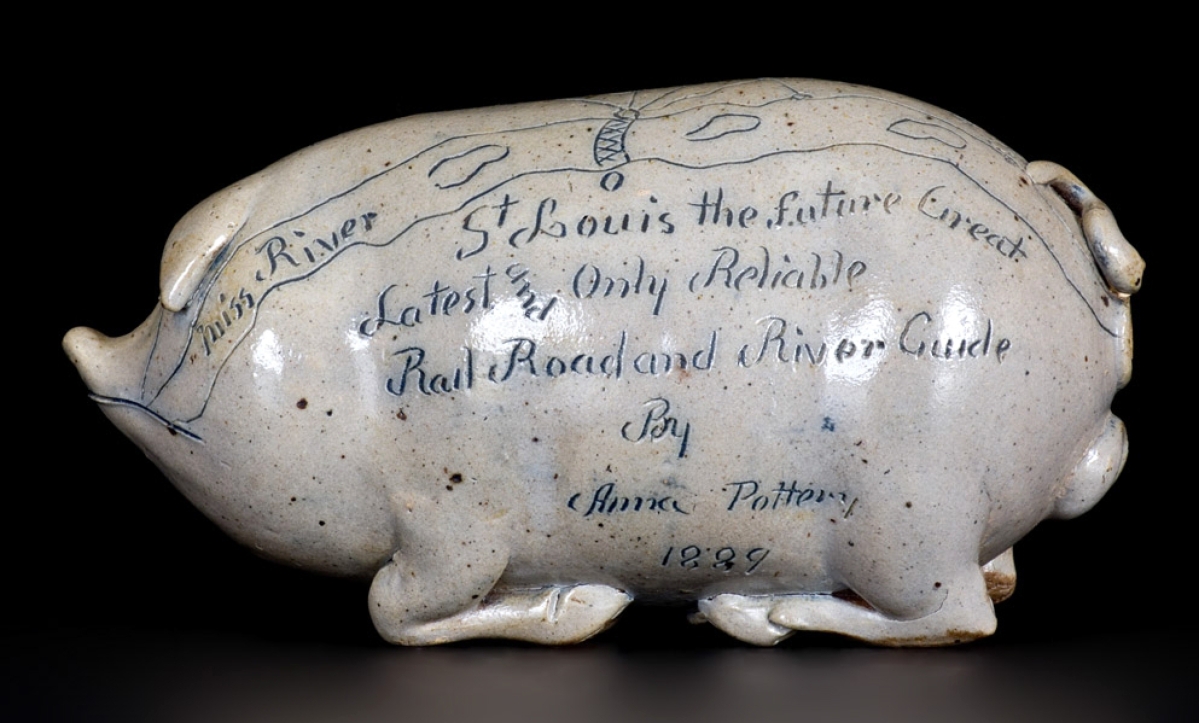 Miss River
St Louis the future Great
Latest and Only Reliable
Rail Road and River Guide
By
Anna Pottery
1889